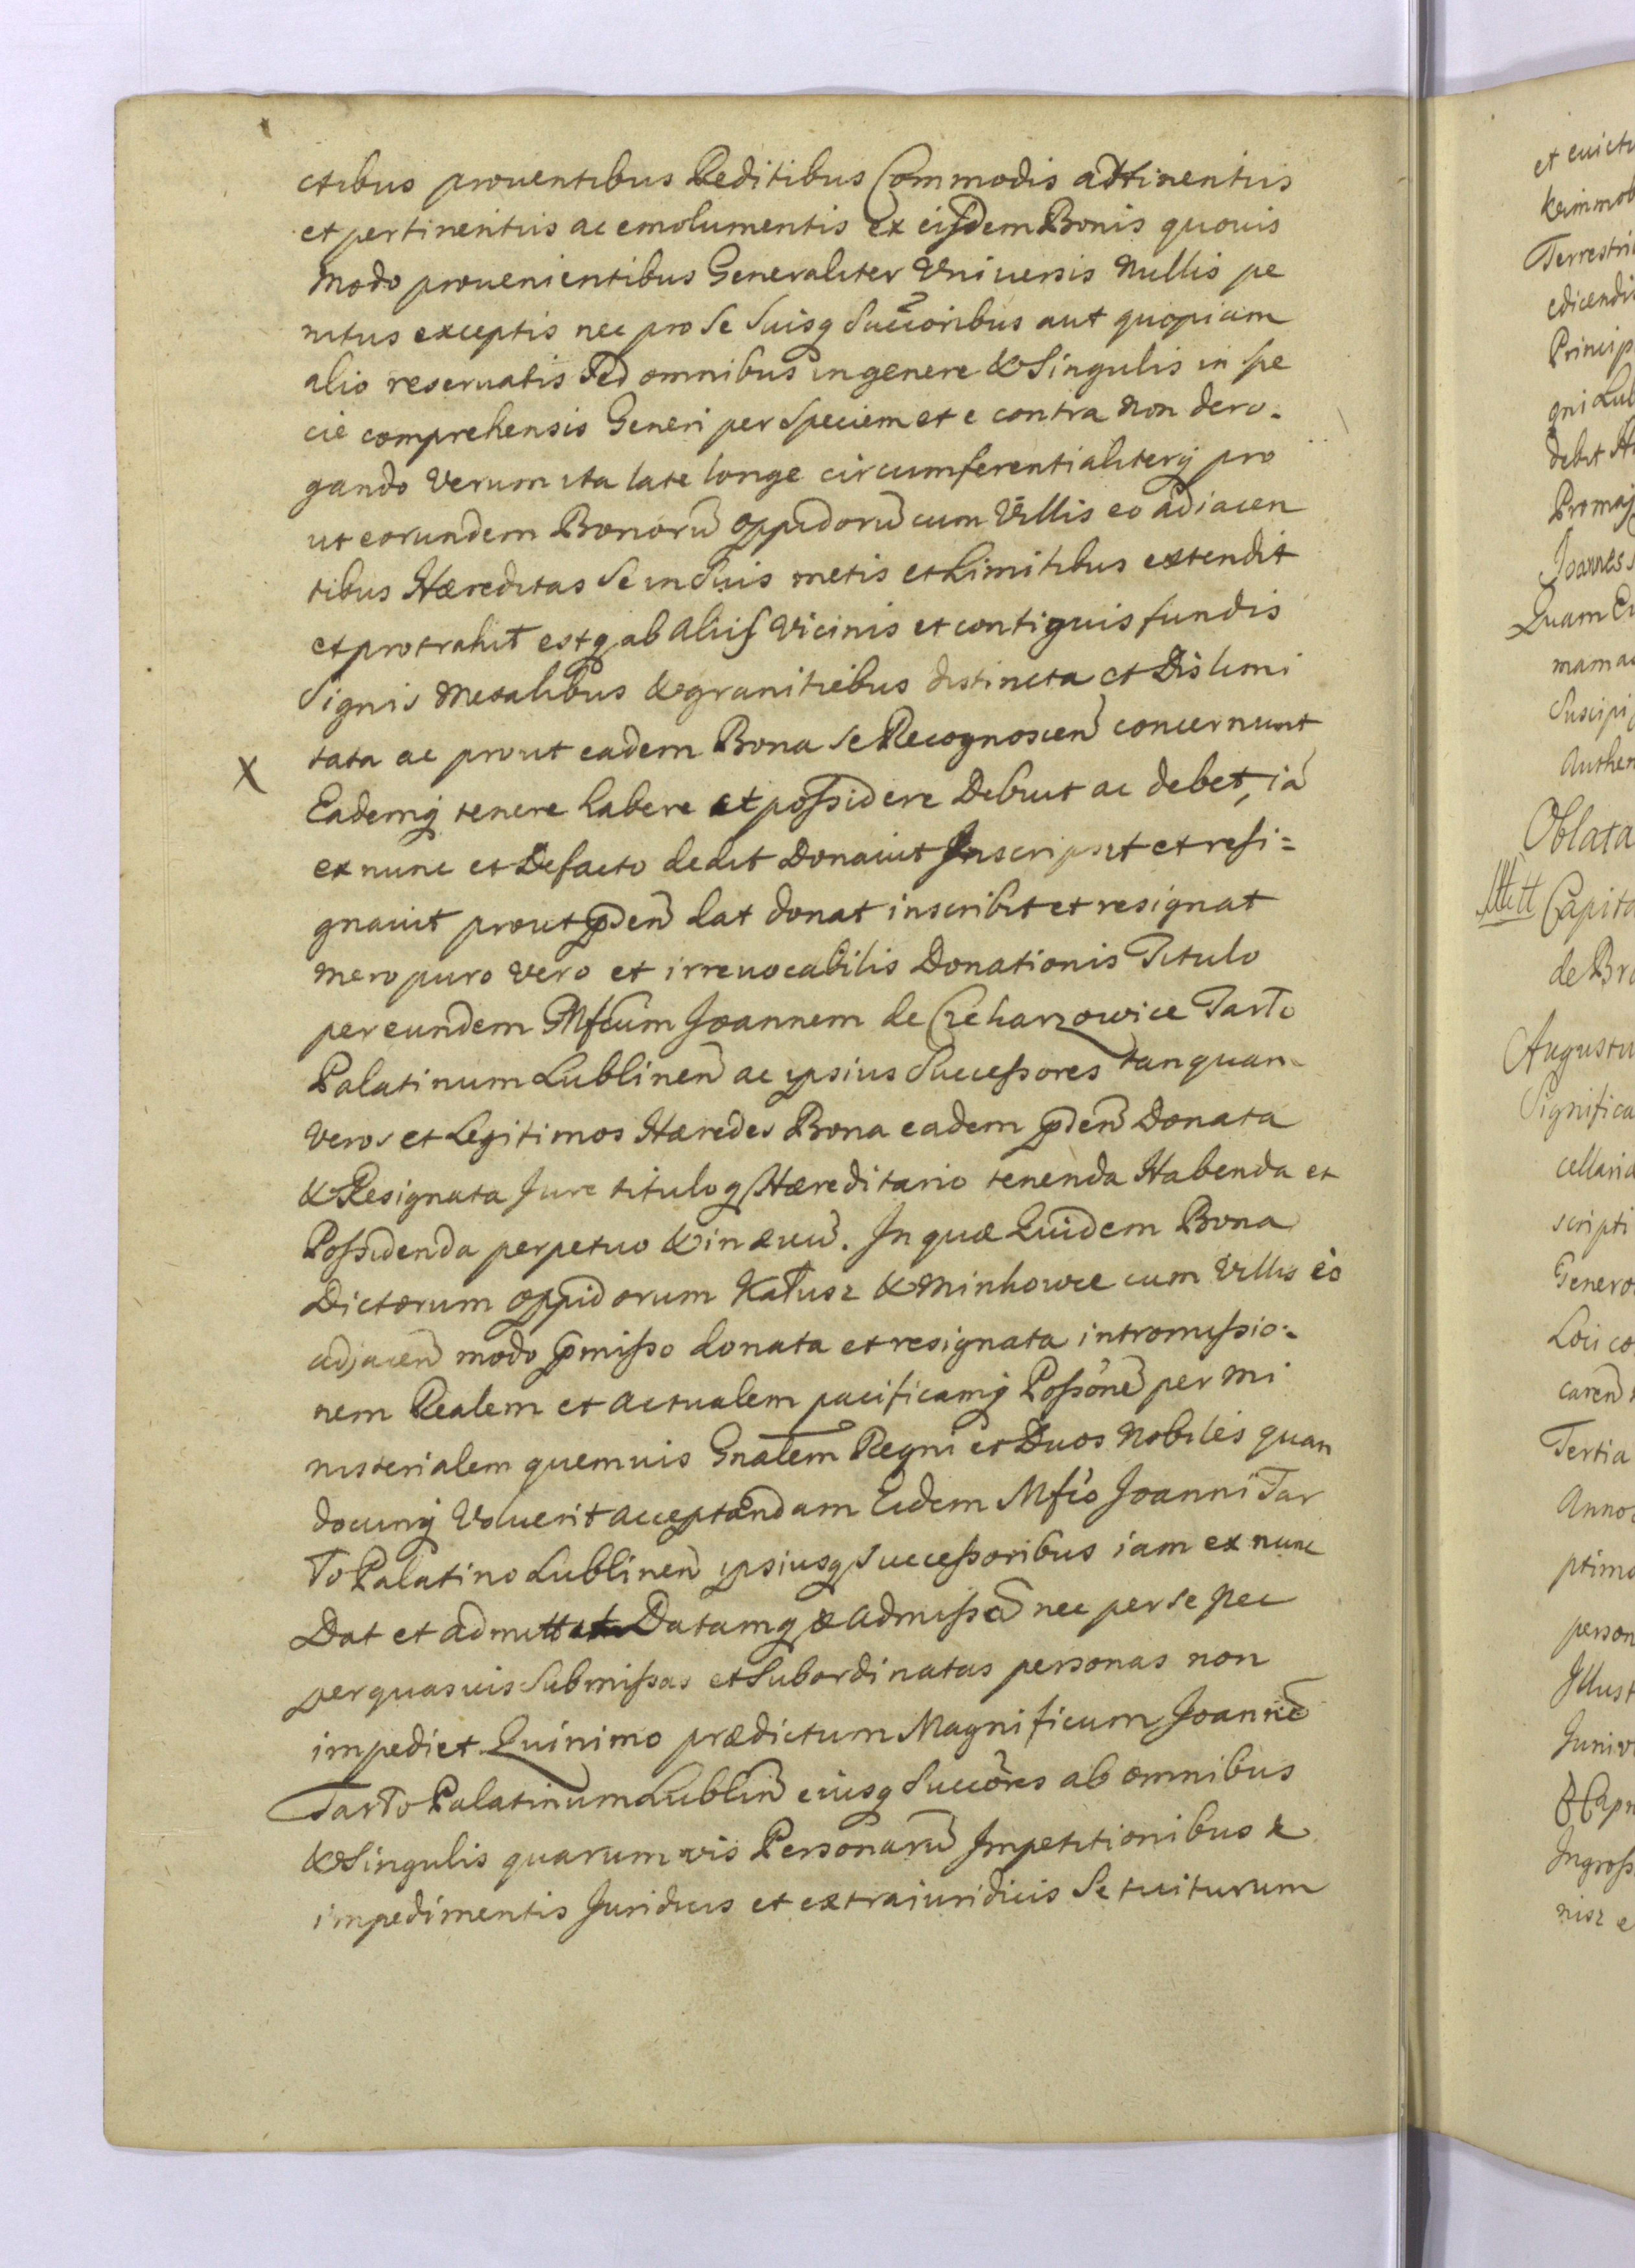 ctibus prouentibus Reditibus Commodis adtinentiis
et pertinentiis ac emolumentis ex eisdem Bonis quouis
modo prouenientibus Generaliter Vniuersis Nullis pe
nitus exceptis nec pro se suisq succoribus aut quopiam
alio reseruatis sed omnibus in genere & singulis in spe
cie comprehensis Generi per speciem et e contra non dero-
gando Verum ita late longe circumferentialiterq pro
ut eorundem Bonorū oppidorū cum Villis eo adiacen
tibus Hæreditas se in suis metis et Limitibus extendit
et protrahit estq ab aliis Vicinis et contiguis fundis
signis metalibus & granitiebus distincta et Dislimi
tata ac prout eadem Bona se Recognoscen̄ concernunt
X
Eademq tenere habere et possidere Debuit ac debet, iā
ex nunc et Defacto dedit Donauit Inscripsit et resi=
gnauit prout pden̄ dat donat inscribit et resignat
mero puro vero et irreuocabilis Donationis Titulo
per eundem Mfcum Joannem de Czekarzowice Tarło
Palatinum Lublinen̄ ac ipsius Successores tanquam
Veros et Legitimos Hæredes Bona eadem pden̄ Donata
& Resignata Jure tituloq Hæreditario tenenda Habenda et
Possidenda perpetuo & in æuū. In quæ Quidem Bona
Dictorum oppidorum Kałusz & Minkowce cum Villis eò
adjacen̄ modo pmisso donata et resignata intromissio=
nem Realem et actualem pacificamq Possōnē per mi
nisterialem quemuis Gnalem Regni et Duos Nobiles quan
docunq Voluerit acceptandam Eidem Mfco Joanni Tar
ło Palatino Lublinen̄ ipsiusq successoribus iam ex nunc
Dat et admittit Datamq & admissā nec per se nec
per quasuis submissas et subordinatas personas non
impediet Quinimo prædictum Magnificum Joannē
Tarło Palatinum Lublin̄ eiusq Succōres ab omnibus
& singulis quarumuis Personarū Impetitionibus &
impedimentis Juridicis et extraiuridicis se tuiturum
et euictu
Terrestri
edicendi
Princip
gni Lub
debit
Promaj
Joannes
Quam
mamas
suscipi
Authen
Oblata
Capita
de Bro
Augustu
Significa
cellaria
scripti
Genero
Loci co
caren̄
Tertia
Anno
ptima
person
Illust
Juniv
Capn
Ingross
nisz e